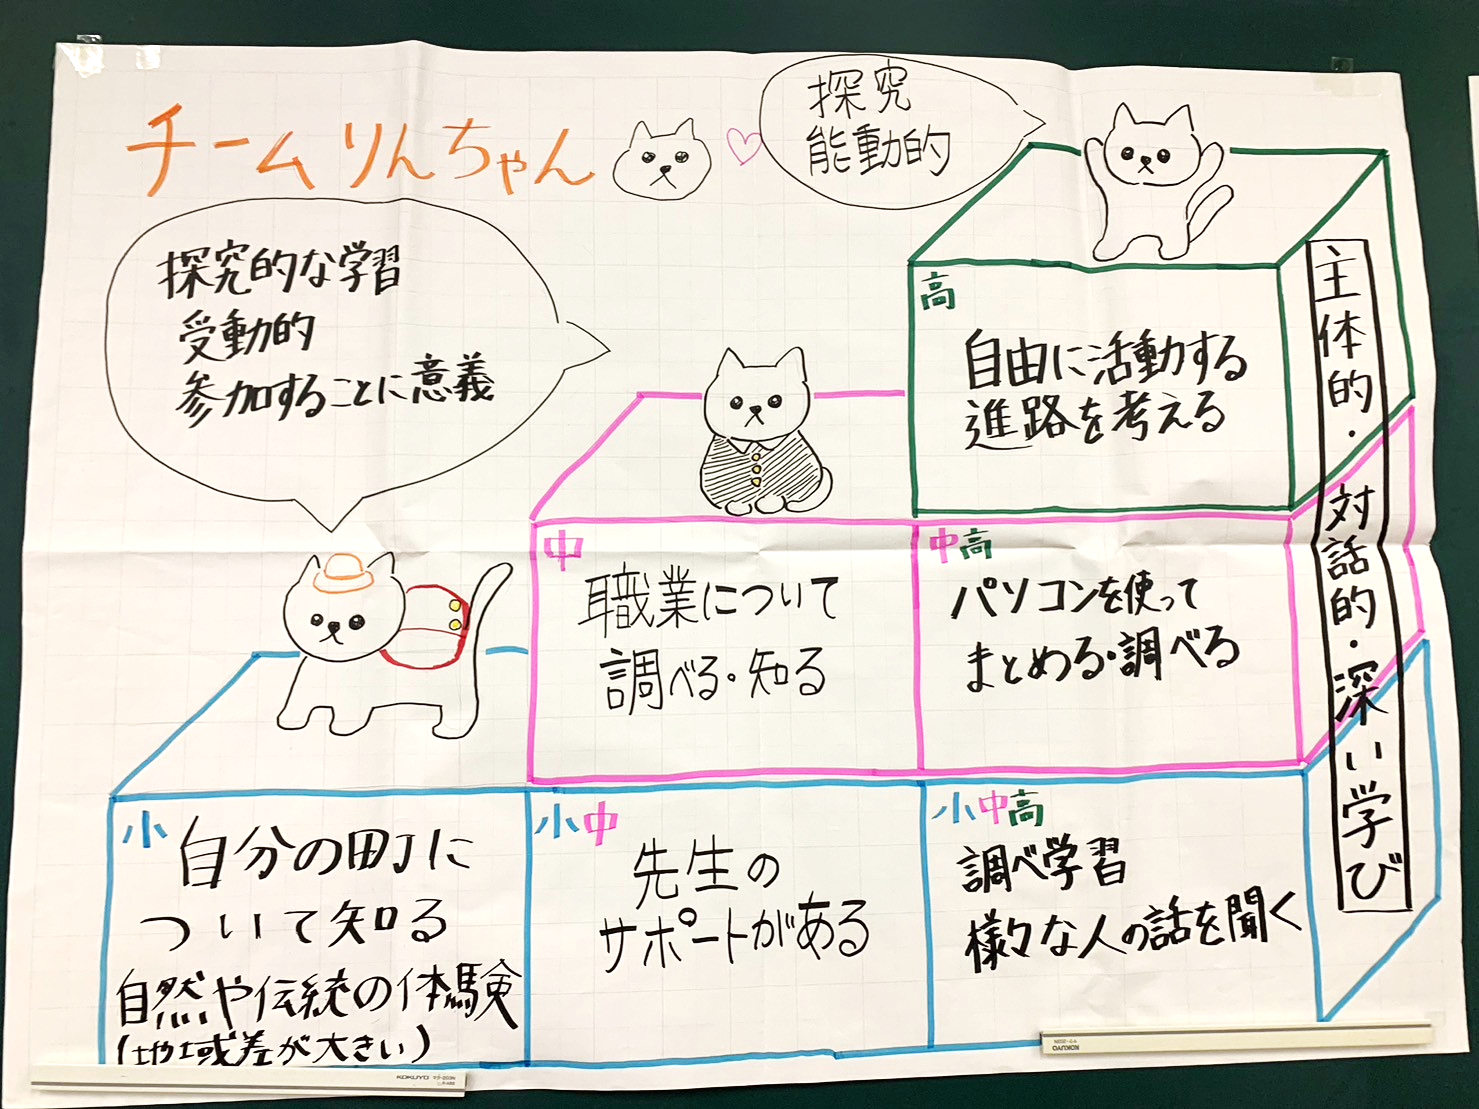 チームりんちゃん
探究
能動的
探究的な学習
受動的
参加することに意義
高
自由に活動する
進路を考える
主体的・対話的・深い学び
中
職業について
調べる・知る
中高
パソコンを使って
まとめる・調べる
小
自分の町に
ついて知る
自然や伝統の体験
(地域差が大きい)
小中
先生の
サポートがある
小中高
調べ学習
様々な人の話を聞く
KOKUYO
KOKUYO